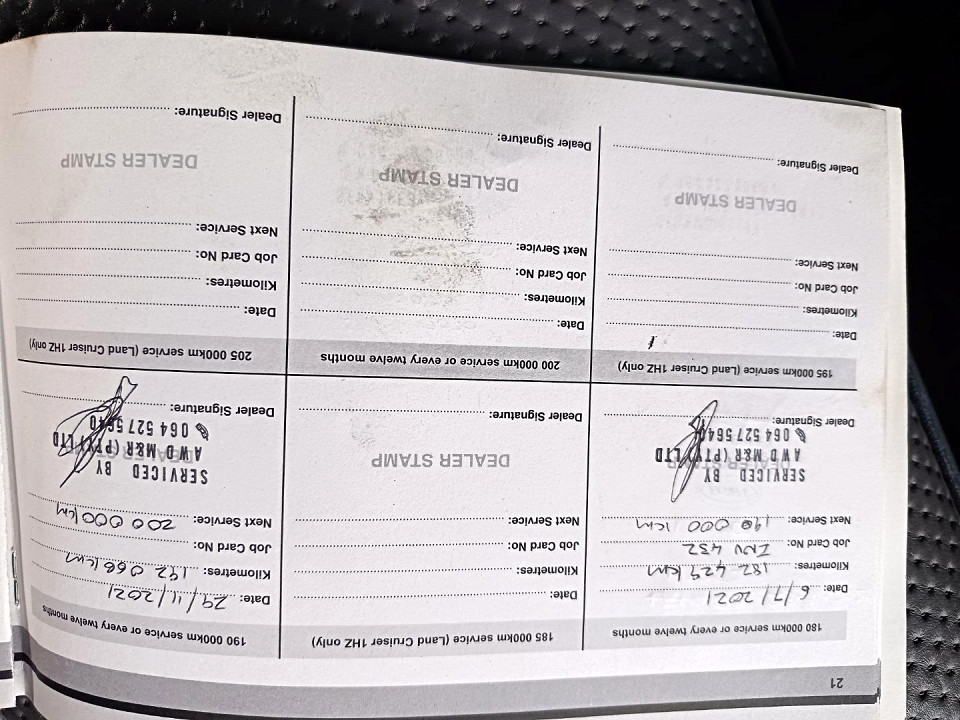 21
180 000km service or every twelve months
Date: 6/7/2021
Kilometres: 182 429 km
Job Card No: INV 432
Next Service: 190 000 km
DEALER STAMP
SERVICED BY
AWD M&R (PTY) LTD
064 527 5640
Dealer Signature:
185 000km service (Land Cruiser 1HZ only)
Date:
Kilometres:
Job Card No:
Next Service:
DEALER STAMP
Dealer Signature:
190 000km service or every twelve months
Date: 29/11/2021
Kilometres: 192 068 km
Job Card No:
Next Service: 200 000 km
DEALER STAMP
SERVICED BY
AWD M&R (PTY) LTD
064 527 5640
Dealer Signature:
195 000km service (Land Cruiser 1HZ only)
Date:
Kilometres:
Job Card No:
Next Service:
DEALER STAMP
Dealer Signature:
200 000km service or every twelve months
Date:
Kilometres:
Job Card No:
Next Service:
DEALER STAMP
Dealer Signature:
205 000km service (Land Cruiser 1HZ only)
Date:
Kilometres:
Job Card No:
Next Service:
DEALER STAMP
Dealer Signature: